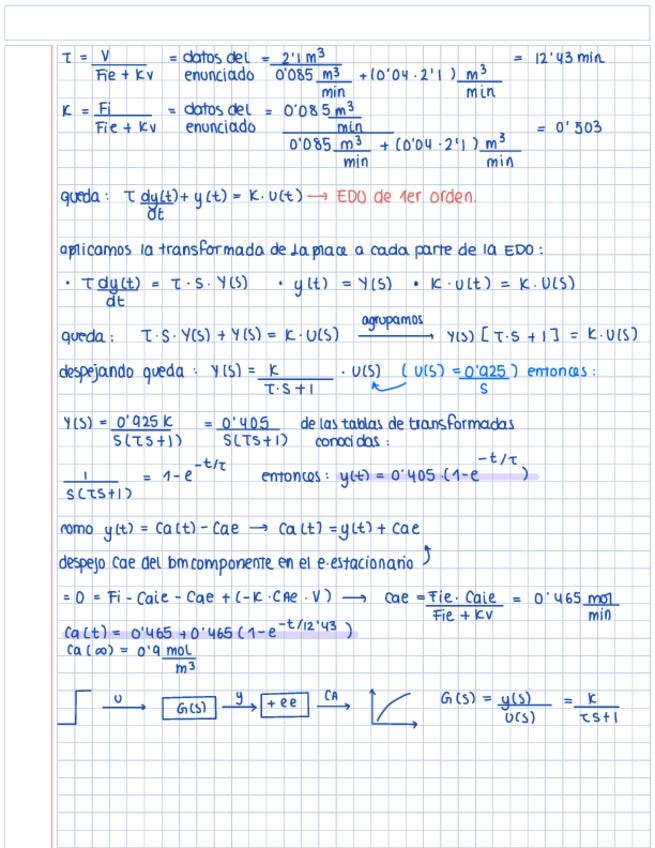 τ = V/(Fie + Kv) = datos del enunciado = 2'1 m³/(0'085 m³/min + (0'04 · 2'1) m³/min) = 12'43 min
K = Fi/(Fie + Kv) = datos del enunciado = 0'085 m³/min/(0'085 m³/min + (0'04 · 2'1) m³/min) = 0'503
queda: τ dy(t)/dt + y(t) = K · U(t) → EDO de 1er orden.
aplicamos la transformada de Laplace a cada parte de la EDO:
· τ dy(t)/dt = τ · S · Y(S) · y(t) = Y(S) · K · U(t) = K · U(S)
queda: τ · S · Y(S) + Y(S) = K · U(S) agrupamos → Y(S) [τ · S + 1] = K · U(S)
despejando queda: Y(S) = K/(τ · S + 1) · U(S) (U(S) = 0'925/S) entonces:
Y(S) = 0'925 K/S(τS+1) = 0'405/S(τS+1) de las tablas de transformadas conocidas:
1/S(τS+1) = 1 - e^(-t/τ) entonces: y(t) = 0'405 · (1 - e^(-t/τ))
como y(t) = Ca(t) - Cae → Ca(t) = y(t) + Cae
despejo Cae del bm componente en el e. estacionario
= 0 = Fi - Caie - Cae + (-K · CAe · V) → Cae = Fie · Caie/(Fie + KV) = 0'465 mol/min
Ca(t) = 0'465 + 0'465 (1 - e^(-t/12'43))
Ca(∞) = 0'9 mol/m³
U → G(S) y → + ee CA → G(S) = y(S)/U(S) = K/(τS+1)